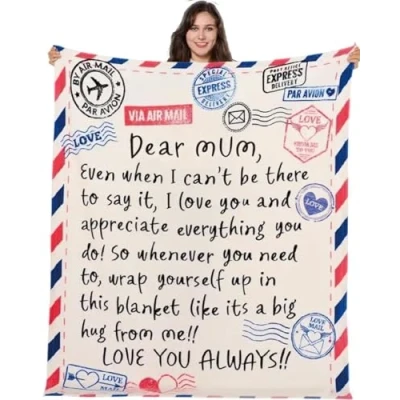 BY AIR-MAIL
PAR AVION
SPECIAL
EXPRESS
DELIVERY
EXPRESS
DELIVERY
PAR AVION
VIA AIR MAIL
LOVE
LOVE
LOVE
Dear MUM,
Even when I can't be there
to say it, I love you and
appreciate everything you
do! So whenever you need
to, wrap yourself up in
this blanket like its a big
hug from me!!
LOVE YOU ALWAYS!!
LOVE
MAIL
LOVE
MAIL